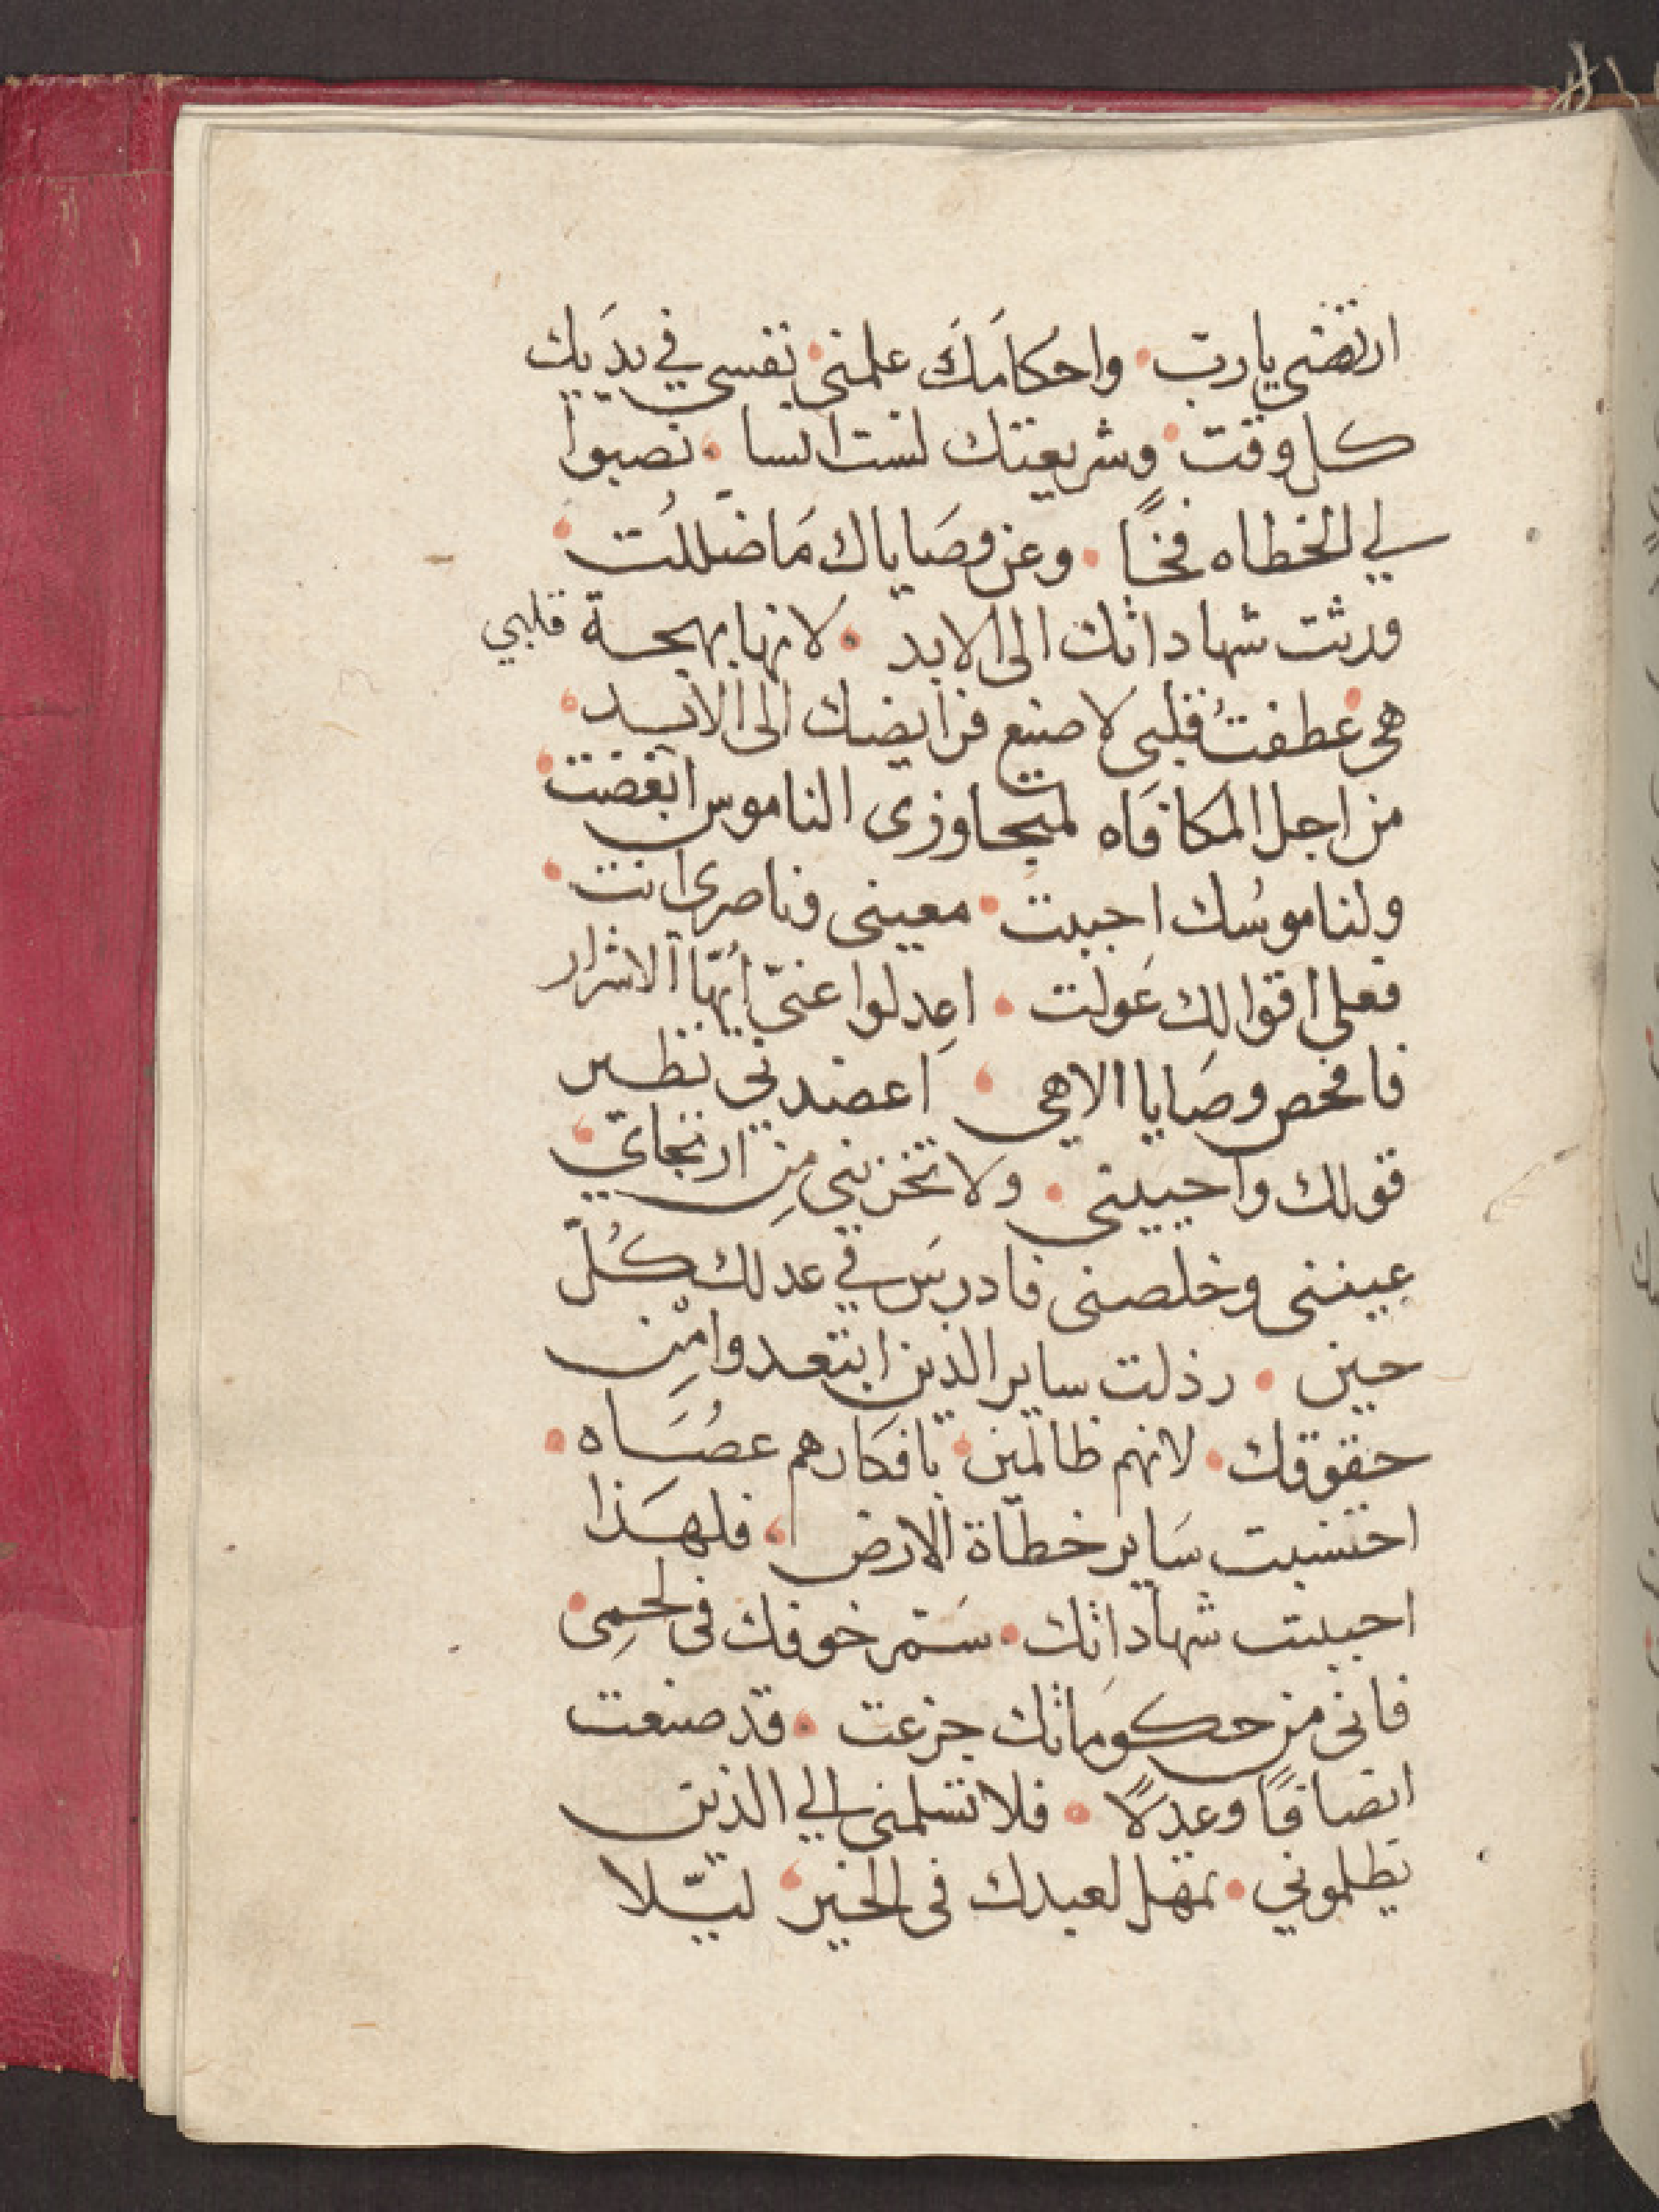 ارتضى يا رب • واحكامَكَ علمنى • نفسي في يدَيك
كل وقت • وشريعتك لست انسا • نصبوا
لي الخطاه فخًا • وعن وصَاياك مَا ضللُت •
ورثت شهاداتك الى الابد • لانها بهجة قلبي
هى • عطفتُ قلبى لاصنع فرايضك الى الابد •
من اجل المكافَاه لمتجاوزى الناموس ابغضت •
ولناموسُك احببت • معينى وناصرى انت •
فعلى اقوالك عَولت • اعِدلوا عنىّ ايُّها الاشرار
فافحص وصَايا الاهي • اعضدني نظير
قولك واحيينى • ولا تخزينى مِن ارتجايّ •
عيننى وخلصنى فادرسَ في عدلك كُلّ
حين • رذلت ساير الذين ابتعدوا مِنْ
حقوقك • لانهم ظالمين • بافكَارهم عصُسَاه •
احتسبت سَاير خطّاة الارض • فلهَذا
احببت شهاداتك • سَمّر خوفك فى لحمِى •
فانى من حكومَاتك جزعت • قد صنعت
انصافًا وعدلًا • فلا تسلمنى الي الذين
يظلموني • تمهل لعبدك فى الخير • ليّلا